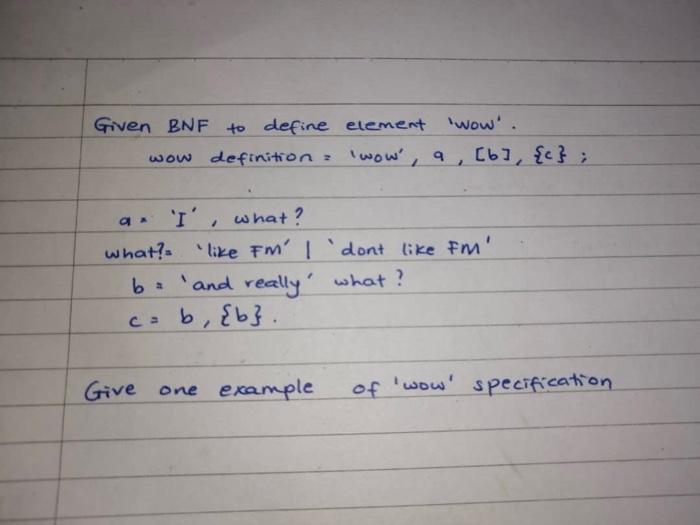 Given BNF to define element 'wow'.
wow definition = 'wow', a, [b], {c};
a = 'I', what?
what?= 'like FM' | 'dont like FM'
b = 'and really' what?
c = b, {b}.
Give one example of 'wow' specification